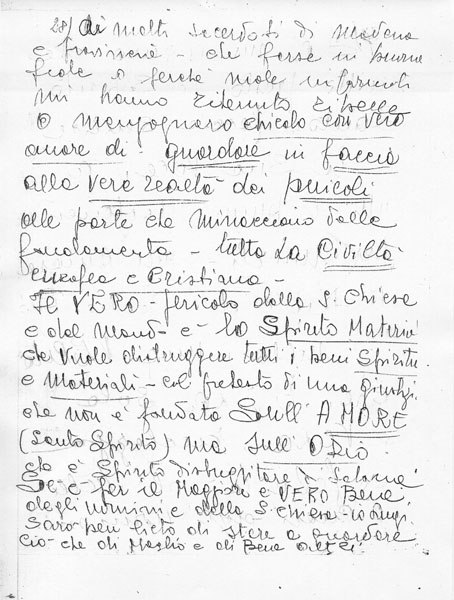 28/ di molti sacerdoti di Modena
e frassinoro - che forse in buona
fede o perché male informati
mi hanno ritenuto ribelle
o menzognaro chiedo con vero
amore di guardare in faccia
alla vera realtà dei pericoli
alle porte che minacciano dalle
fondamenta - tutta La Civiltà
europea e Cristiana -
Il VERO - pericolo della S. Chiesa
e del Mond- è lo Spirito Materia
che vuole distruggere tutti i beni Spirit.
e Materiali - col pretesto di una giustizi
che non è fondata Sull' AMORE
(Santo Spirito) ma sull' ODio
che è Spirito distruggitore di Satana
Se è per il Maggiore e VERO Bene
degli uomini e della S. Chiesa - io Luigi
Sarò ben lieto di stare a guardare
Ciò che di Meglio e di Bene